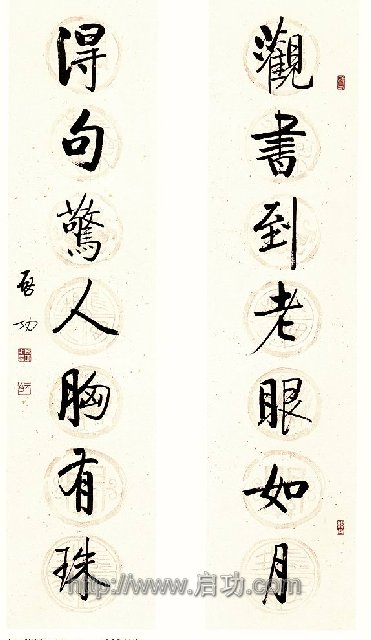 觀書到老眼如月
得句驚人胸有珠
启功
http://www.启功.com